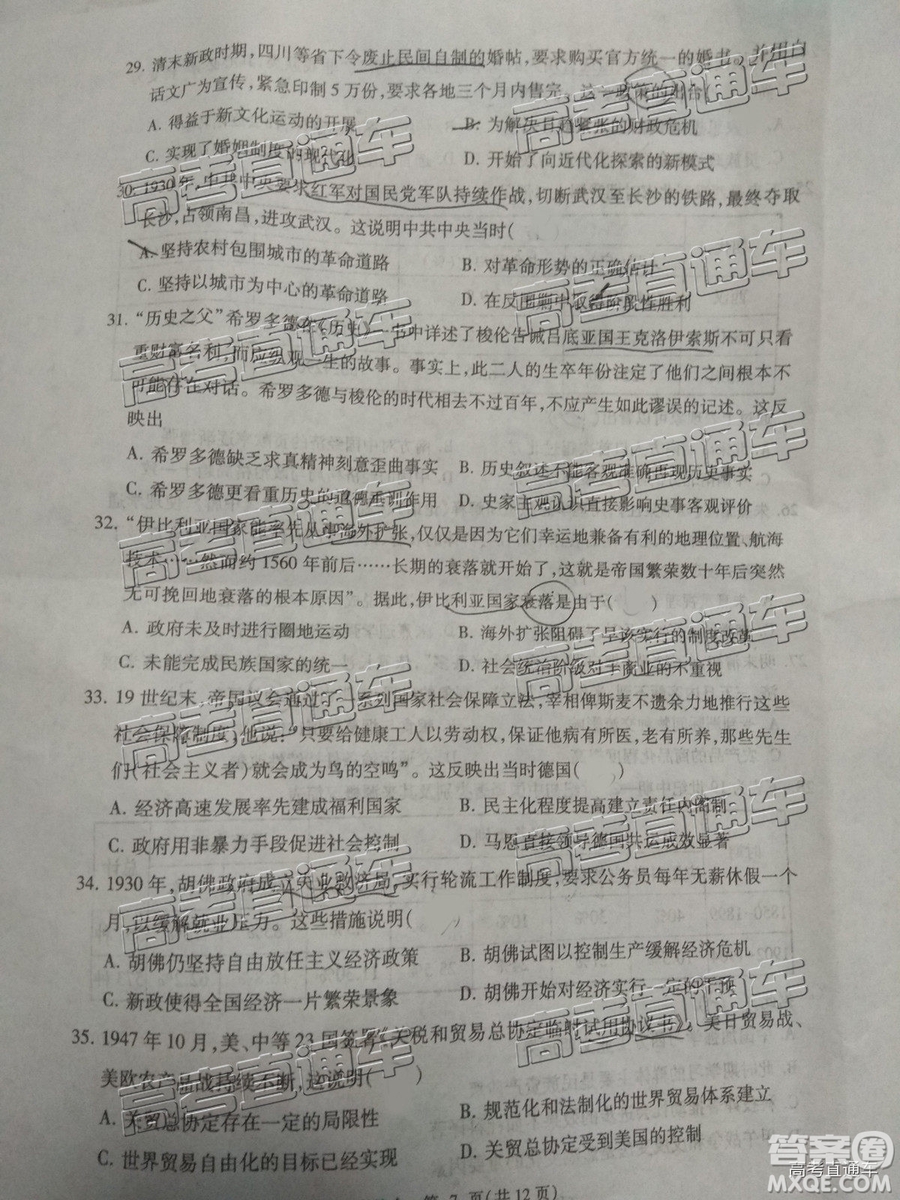 29. 清末新政时期,四川等省下令废止民间自制的婚帖,要求购买官方统一的婚书,并用白
话文广为宣传,紧急印制 5 万份,要求各地三个月内售完。这一政策的出台(
A. 得益于新文化运动的开展 B. 为解决日趋紧张的财政危机
C. 实现了婚姻制度的现代化 D. 开始了向近代化探索的新模式
30. 1930 年,中共中央要求红军对国民党军队持续作战,切断武汉至长沙的铁路,最终夺取
长沙,占领南昌,进攻武汉。这说明中共中央当时(
A. 坚持农村包围城市的革命道路 B. 对革命形势的正确估计
C. 坚持以城市为中心的革命道路 D. 在反围剿中取得阶段性胜利
31. “历史之父”希罗多德在《历史》一书中详述了梭伦告诫吕底亚国王克洛伊索斯不可只看
重财富名利,而应宏观一生的故事。事实上,此二人的生卒年份注定了他们之间根本不
可能存在对话。希罗多德与梭伦的时代相去不过百年,不应产生如此谬误的记述。这反
映出
A. 希罗多德缺乏求真精神刻意歪曲事实 B. 历史叙述不能客观准确再现历史事实
C. 希罗多德更看重历史的道德垂训作用 D. 史家主观认识直接影响史事客观评价
32. “伊比利亚国家能率先从事海外扩张,仅仅是因为它们幸运地兼备有利的地理位置、航海
技术……然而约 1560 年前后……长期的衰落就开始了,这就是帝国繁荣数十年后突然
无可挽回地衰落的根本原因”。据此,伊比利亚国家衰落是由于( )
A. 政府未及时进行圈地运动 B. 海外扩张阻碍了早该实行的制度改革
C. 未能完成民族国家的统一 D. 社会统治阶级对工商业的不重视
33. 19 世纪末,帝国议会通过了一系列国家社会保障立法,宰相俾斯麦不遗余力地推行这些
社会保障制度,他说:“只要给健康工人以劳动权,保证他病有所医,老有所养,那些先生
们(社会主义者)就会成为鸟的空鸣”。这反映出当时德国( )
A. 经济高速发展率先建成福利国家 B. 民主化程度提高建立责任内阁制
C. 政府用非暴力手段促进社会控制 D. 马恩直接领导德国共运成效显著
34. 1930 年,胡佛政府成立失业救济局,实行轮流工作制度,要求公务员每年无薪休假一个
月,以缓解就业压力。这些措施说明( )
A. 胡佛仍坚持自由放任主义经济政策 B. 胡佛试图以控制生产缓解经济危机
C. 新政使得全国经济一片繁荣景象 D. 胡佛开始对经济实行一定的干预
35. 1947 年 10 月,美、中等 23 国签署《关税和贸易总协定临时试用协议书》。美日贸易战、
美欧农产品战持续不断,这说明( )
A. 关贸总协定存在一定的局限性 B. 规范化和法制化的世界贸易体系建立
C. 世界贸易自由化的目标已经实现 D. 关贸总协定受到美国的控制
第 7 页(共 12 页)
高考直通车
高考直通车
高考直通车
高考直通车
高考直通车
高考直通车
高考直通车
高考直通车
高考直通车
高考直通车
高考直通车
高考直通车
答案圈
高考直通车
MXQE.COM